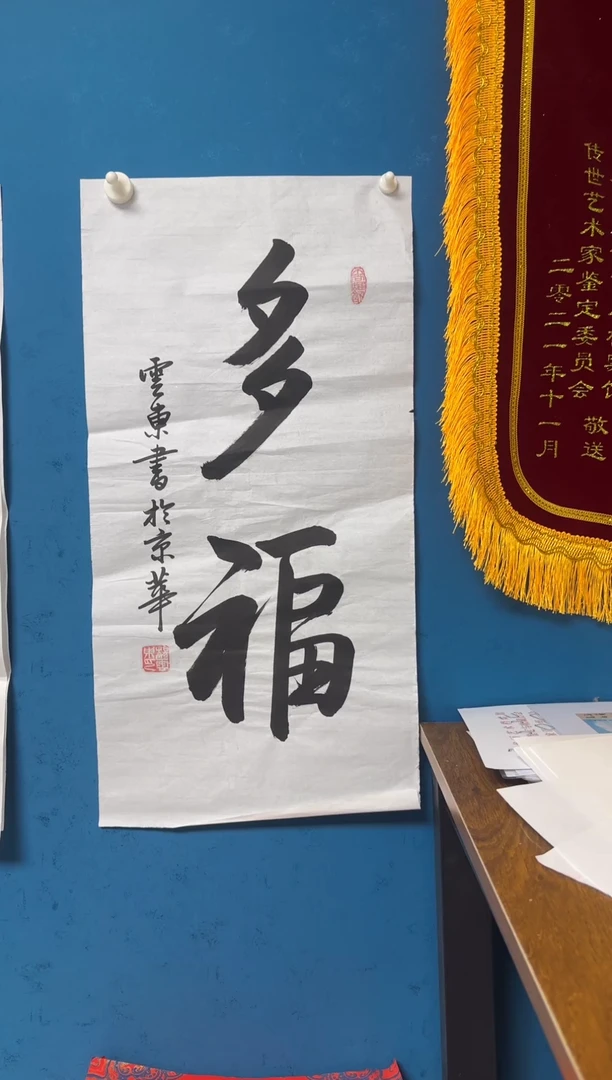 多福
雲東書於京華
传世艺术家鉴定委员会
敬送
二零二一年十一月